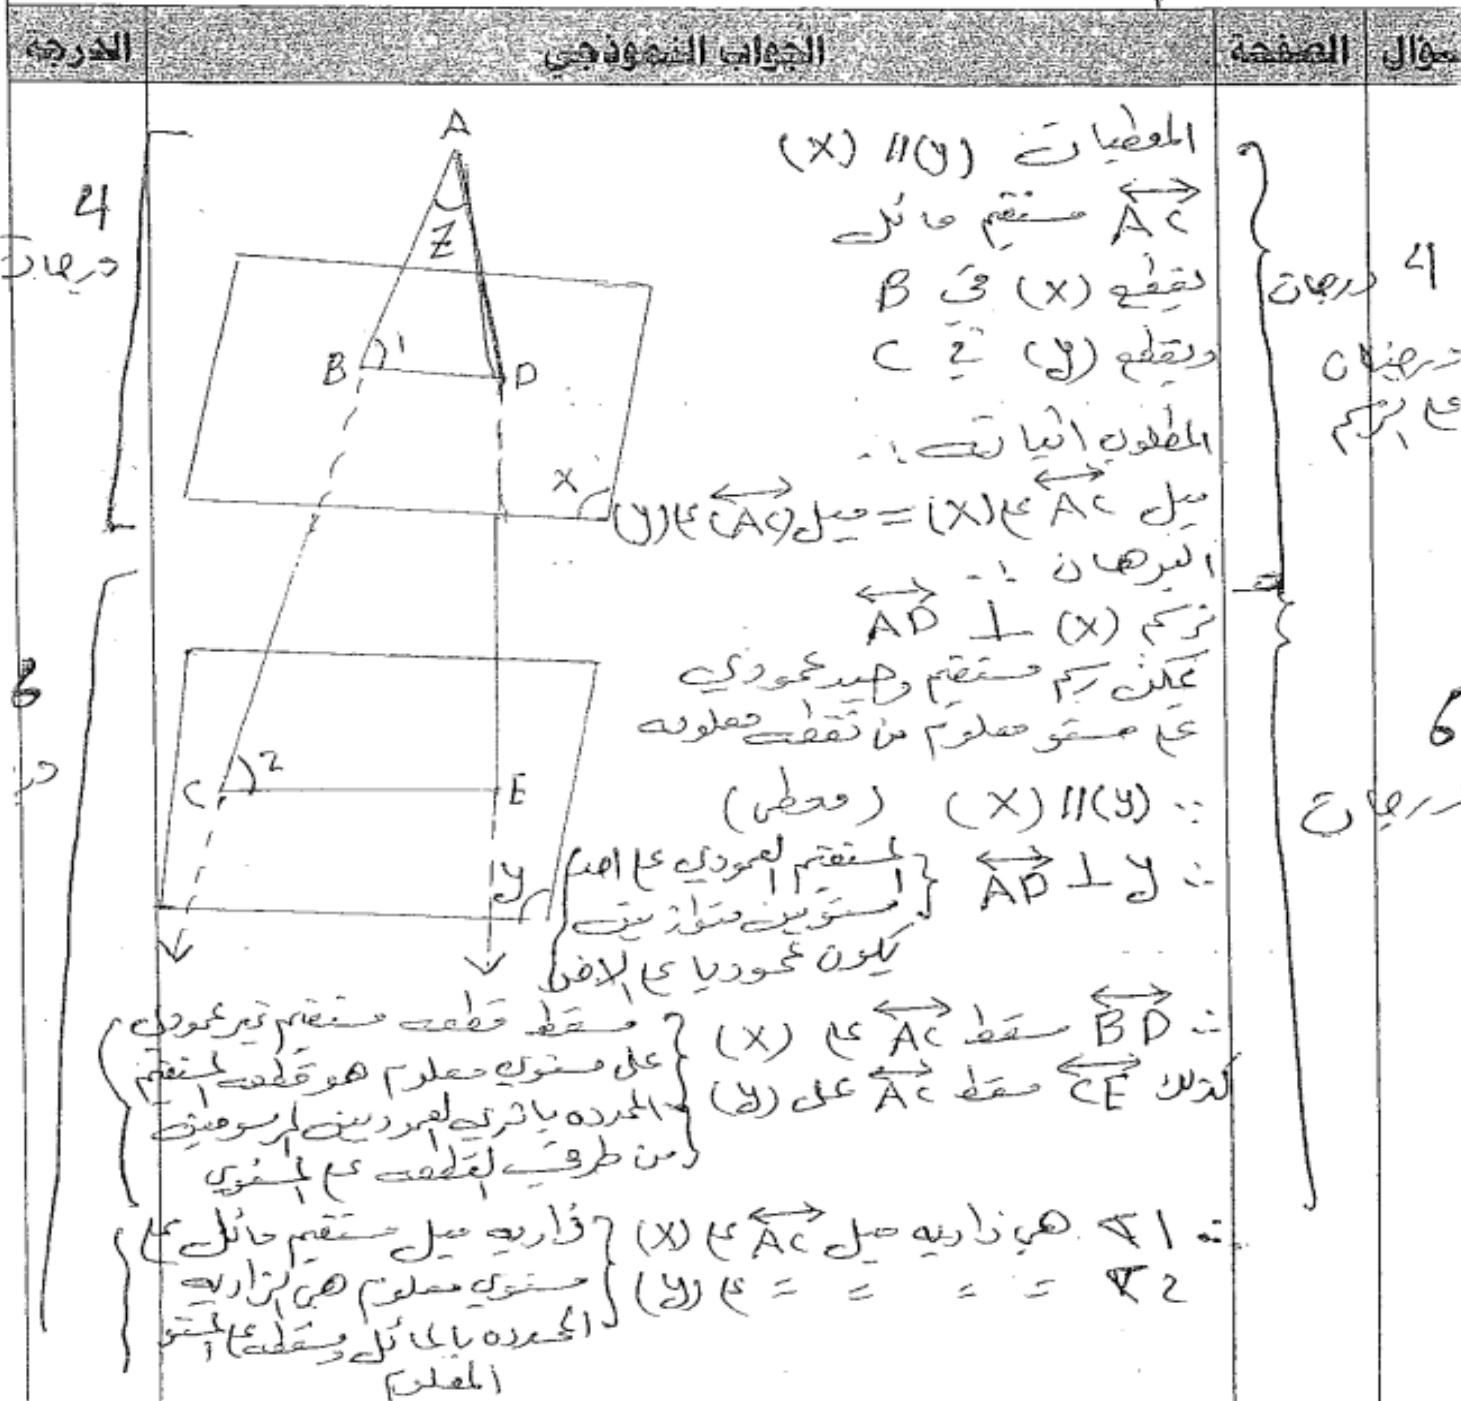 سؤال الصفحة الجواب النموذجي الدرجة
المعطيات (X) // (Y)
AC مستقيم مائل
يقطع (X) في B
ويقطع (Y) في C
المطلوب اثباته :-
ميل AC على (X) = ميل (AC) على (Y)
البرهان :-
نرسم AD ⊥ (X)
يمكن رسم مستقيم وحيد عمودي
على مستو معلوم من نقطة معلومة
∵ (X) // (Y) (معطى)
∴ AD ⊥ Y
{المستقيم العمودي على احد
مستويين متوازيين
يكون عموديا على الاخر}
∴ BD مسقط AC على (X)
كذلك CE مسقط AC على (Y)
{مسقط قطعة مستقيم غير عمودي
على مستوي معلوم هو قطعة المستقيم
المحدده باثري العمودين المرسومين
من طرفي القطعه على المستوي}
∴ 1∢ هي زاويه ميل AC على (X)
2∢ = = = = على (Y)
{زاويه ميل مستقيم مائل على
مستوي معلوم هي الزاويه
المحدده بالمائل ومسقطه على المستو
المعلوم}
A
Z
B 1 D
X
C 2 E
Y
4
درجات
4 درجات
درجتان
على الرسم
6
در
6
درجات